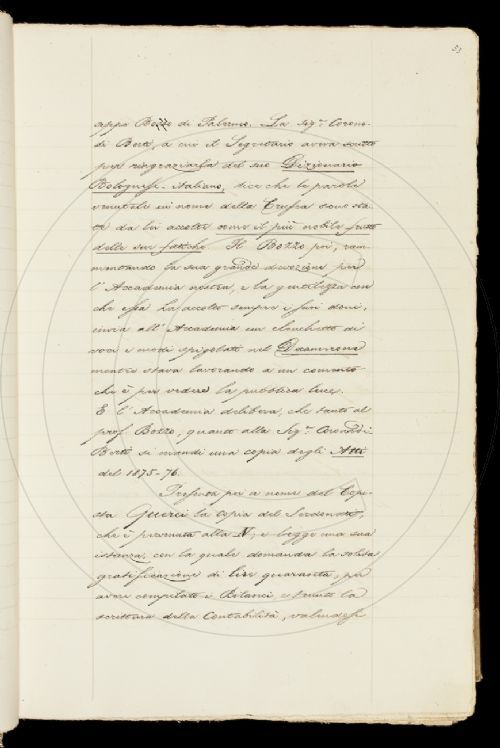 53
seppe Bozzo di Palermo. La Sig.ra Coronedi
di Berti, a cui il Segretario aveva scritto
per ringraziarla del suo Dizionario
Bolognese-italiano, dice che le parole
venutele in nome della Crusca sono sta-
te da lei accolte come il più nobile frutto
delle sue fatiche. Il Bozzo poi, ram-
mentando la sua grande devozione per
l'Accademia nostra, e la gentilezza con
che essa ha accolto sempre i suoi doni,
invia all'Accademia un elenchetto di
voci e modi spigolati nel Decamerone
mentre stava lavorando a un comento
che è per vedere la pubblica luce.
E l'Accademia delibera, che tanto al
prof. Bozzo, quanto alla Sig.ra Coronedi
Berti si mandi una copia degli Atti
del 1875-76.
Presenta poi a nome del Copi-
sta Guerci la copia del Serdonati,
che è pervenuta alla N; e legge una sua
istanza, con la quale domanda la solita
gratificazione di lire quaranta, per
avere compilato i Bilanci, e tenuto la
scrittura della Contabilità,